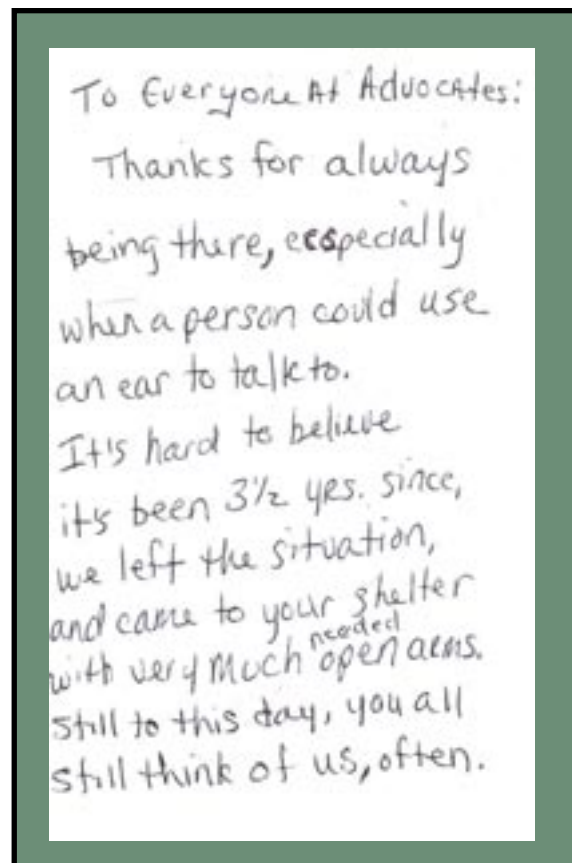 To Everyone At Advocates:
Thanks for always
being there, ecspecially
when a person could use
an ear to talk to.
It's hard to believe
it's been 3½ yrs. since,
we left the situation,
and came to your shelter
with very much needed open arms.
Still to this day, you all
still think of us, often.